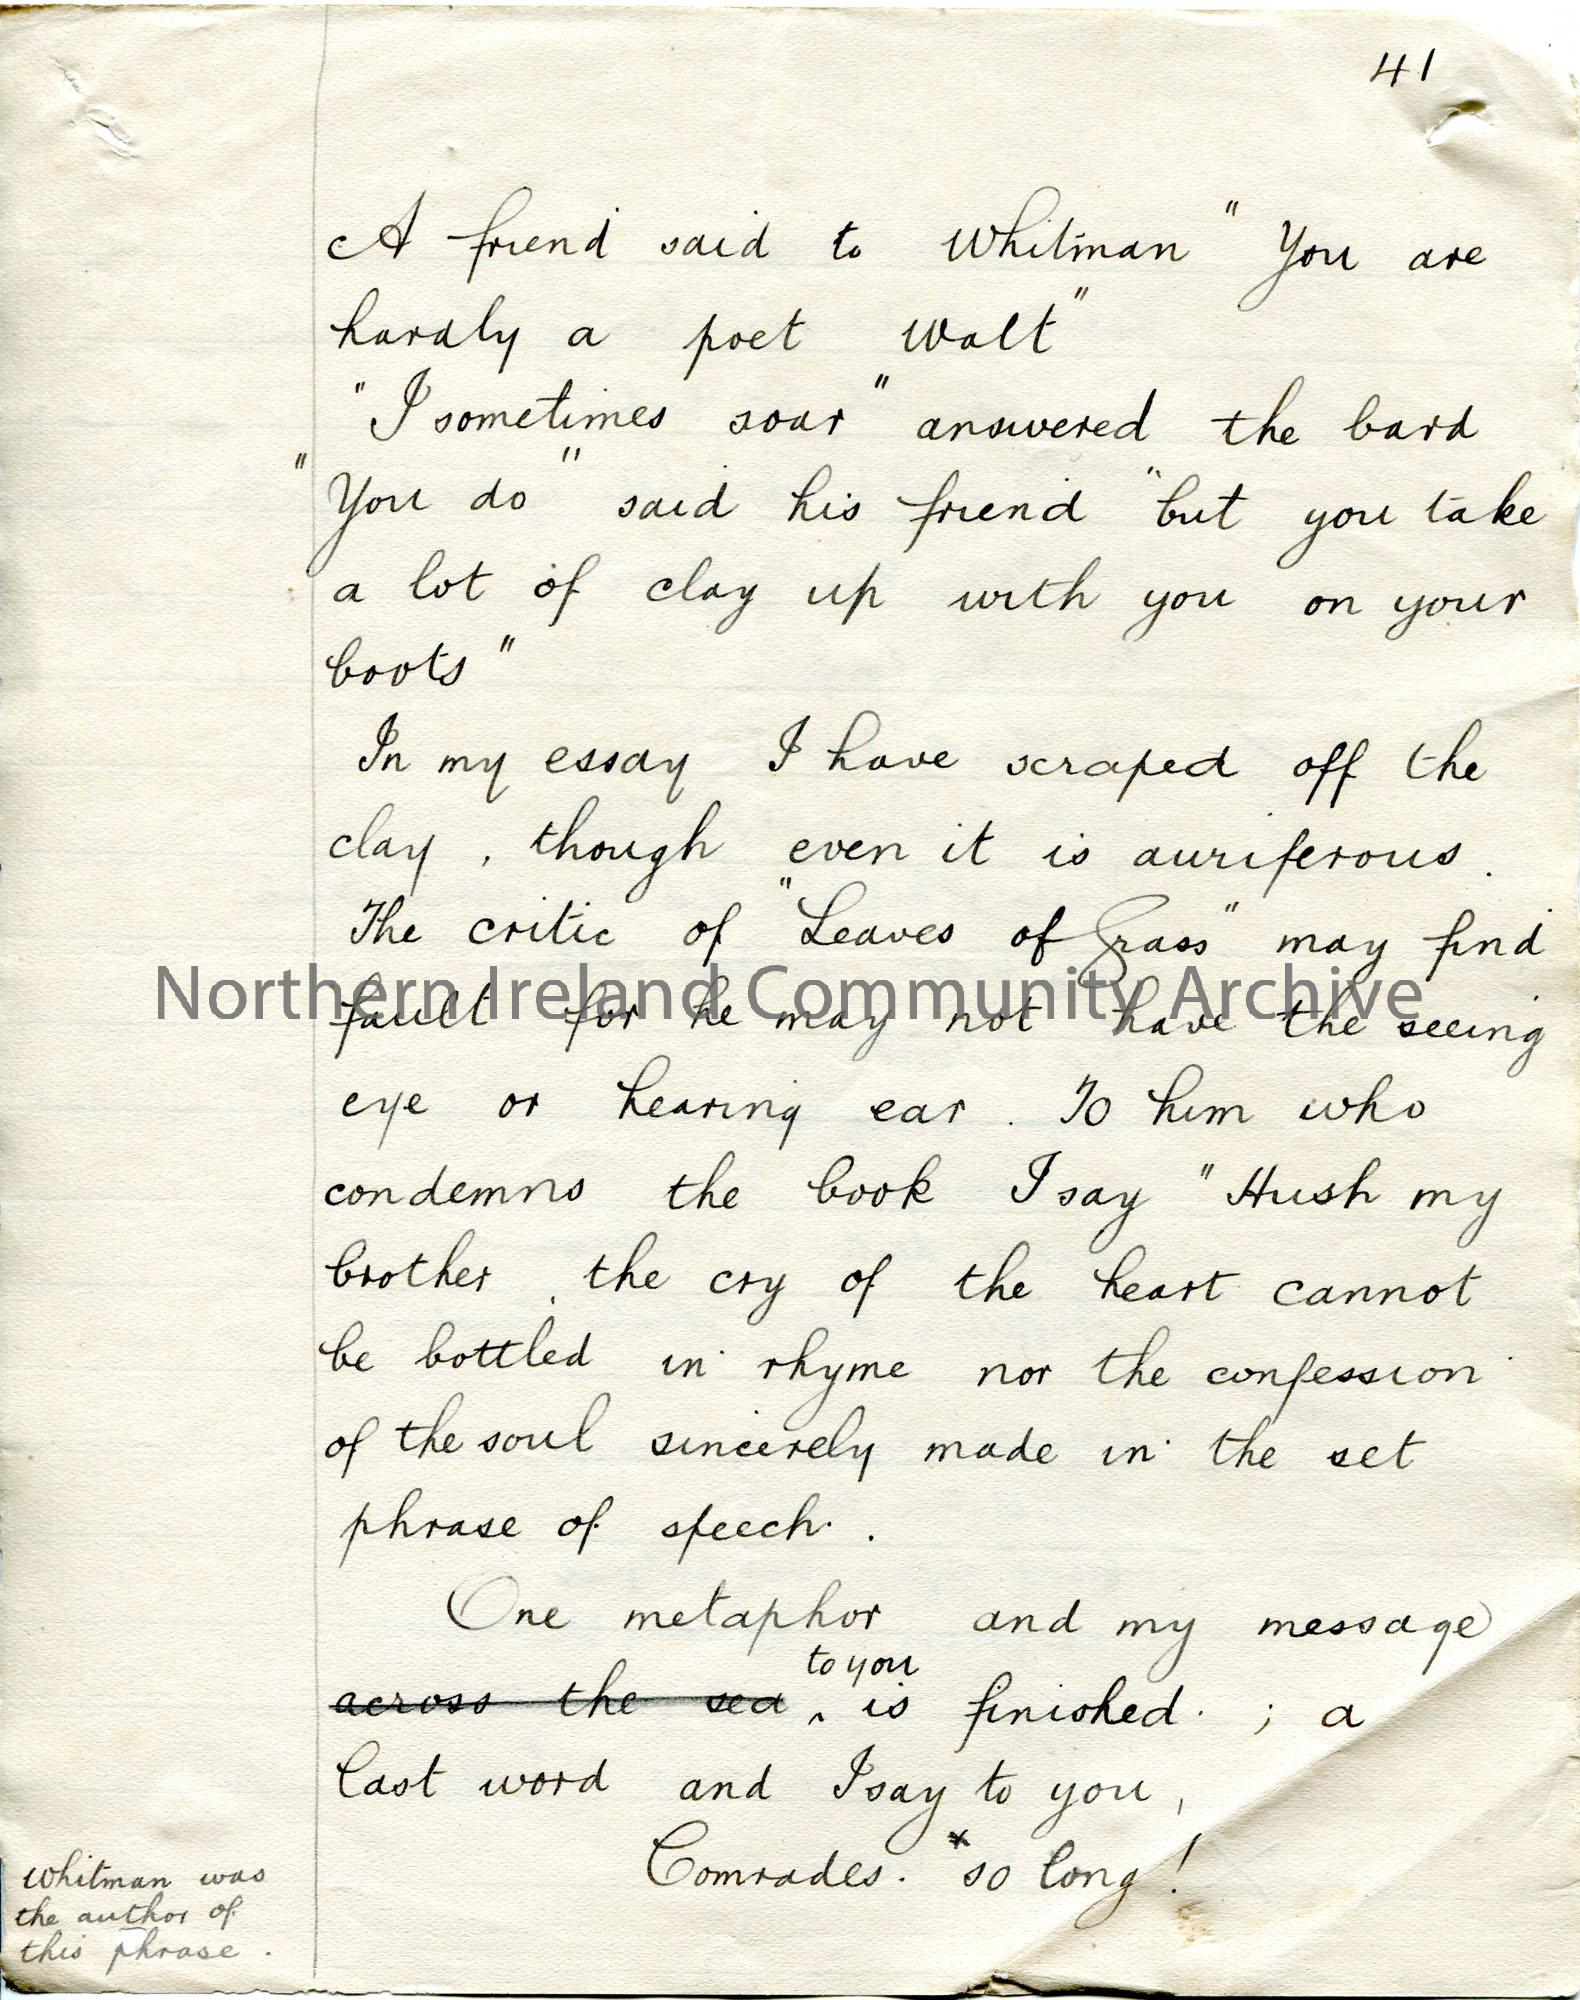 41
A friend said to Whitman "You are
hardly a poet Walt"
"I sometimes soar" answered the bard
"You do" said his friend "but you take
a lot of clay up with you on your
boots"
In my essay I have scraped off the
clay, though even it is auriferous.
The critic of "Leaves of Grass" may find
fault for he may not have the seeing
Northern Ireland Community Archive
eye or hearing ear. To him who
condemns the book I say "Hush my
brother, the cry of the heart cannot
be bottled in rhyme nor the confession
of the soul sincerely made in the set
phrase of speech.
One metaphor and my message
to you
across the sea ‸ is finished ; a
last word and I say to you,
Comrades. *so long!
Whitman was
the author of
this phrase.